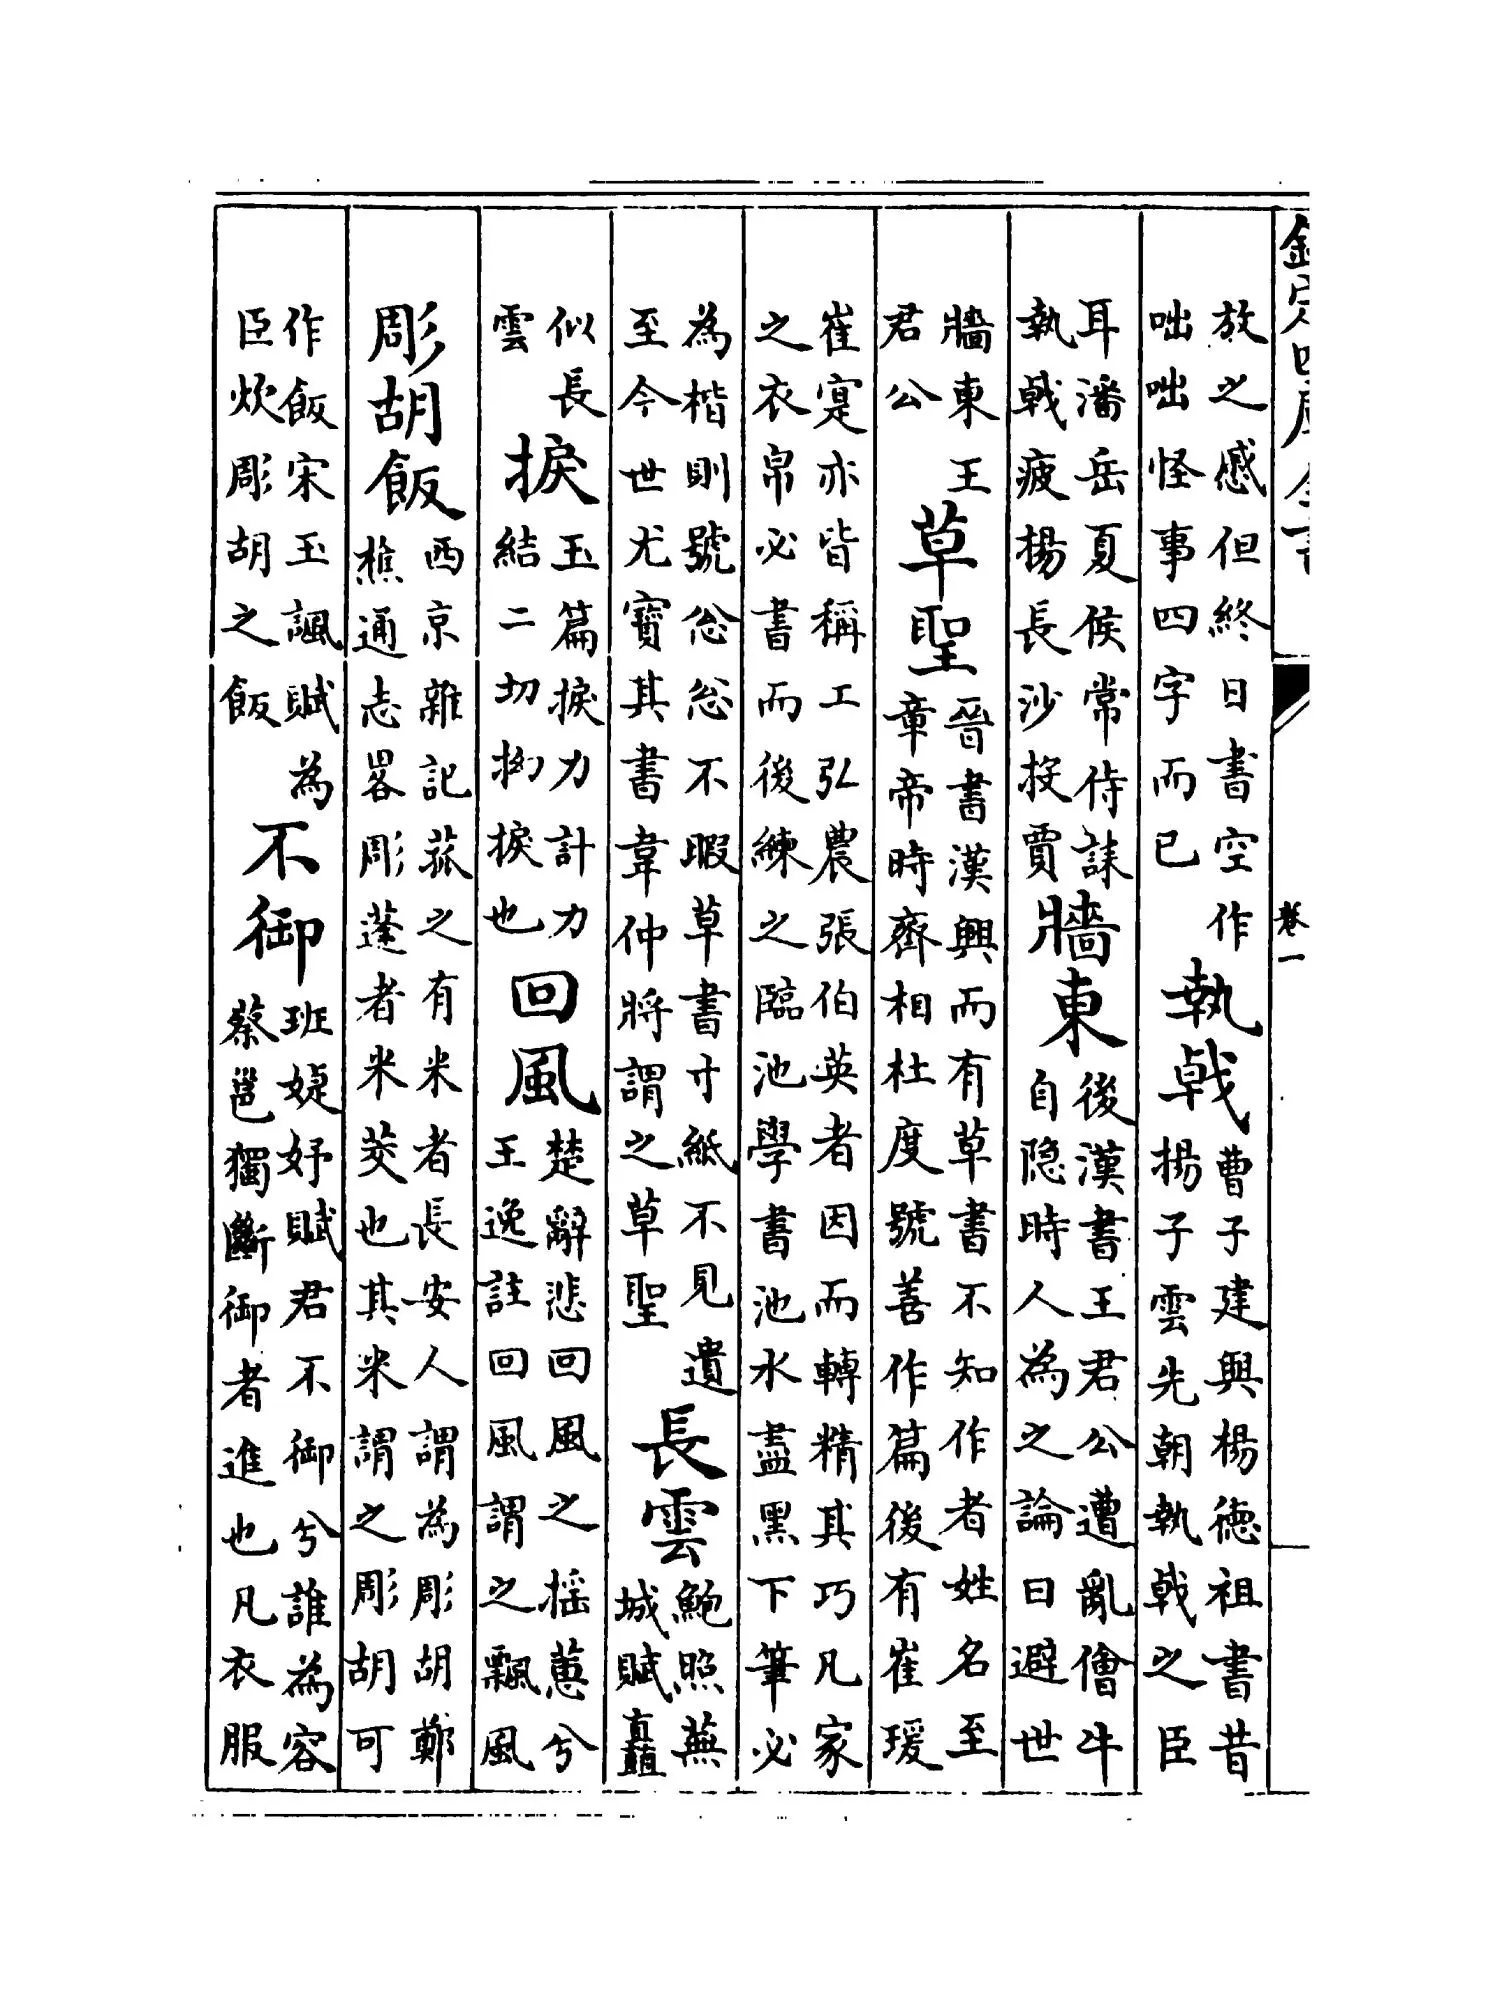 欽定四庫全書
卷一
放之感但終日書空作
咄咄怪事四字而已
執戟
曹子建與楊德祖書昔
揚子雲先朝執戟之臣
耳潘岳夏侯常侍誄
執戟疲楊長沙投賈
牆東
後漢書王君公遭亂儈牛
自隐時人為之論曰避世
牆東王
君公
草聖
晉書漢興而有草書不知作者姓名至
章帝時齊相杜度號善作篇後有崔瑗
崔寔亦皆稱工弘農張伯英者因而轉精其巧凡家
之衣帛必書而後練之臨池學書池水盡黑下筆必
為楷則號忩忩不暇草書寸紙不見遺
至今世尤寶其書韋仲將謂之草聖
長雲
鮑照蕪
城賦矗
似長
雲
捩
玉篇捩力計力
結二切拗捩也
回風
楚辭悲回風之揺蕙兮
王逸註回風謂之飄風
彫胡飯
西京雜記菰之有米者長安人謂為彫胡鄭
樵通志畧彫蓬者米茭也其米謂之彫胡可
作飯宋玉諷賦為
臣炊彫胡之飯
不御
班婕妤賦君不御兮誰為容
蔡邕獨斷御者進也凡衣服